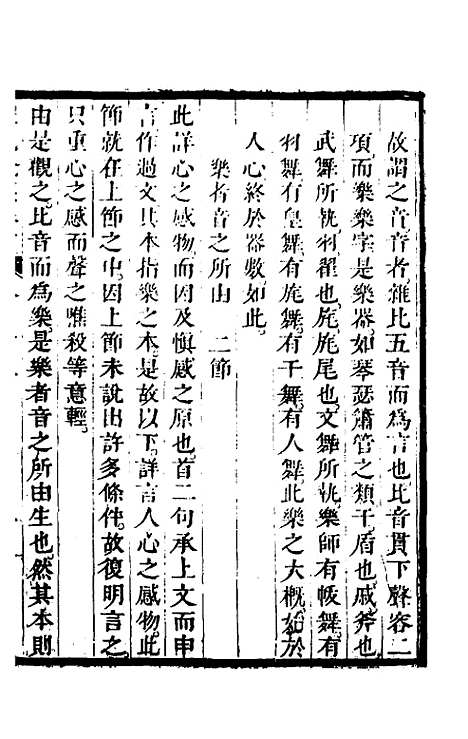 故謂之音音者雜比五音而爲言也比音貫下聲容二
項而樂樂字是樂器如琴瑟簫管之類干盾也戚斧也
武舞所執羽翟也旄旄尾也文舞所執樂師有帗舞有
羽舞有皇舞有旄舞有干舞有人舞此樂之大概始於
人心終於器數如此
樂者音之所由 二節
此詳心之感物而因及愼感之原也首二句承上文而申
言作過文其本指樂之本是故以下詳言人心之感物此
節就在上節之中因上節未說出許多條件故復明言之
只重心之感而聲之噍殺等意輕
由是觀之比音而爲樂是樂者音之所由生也然其本則